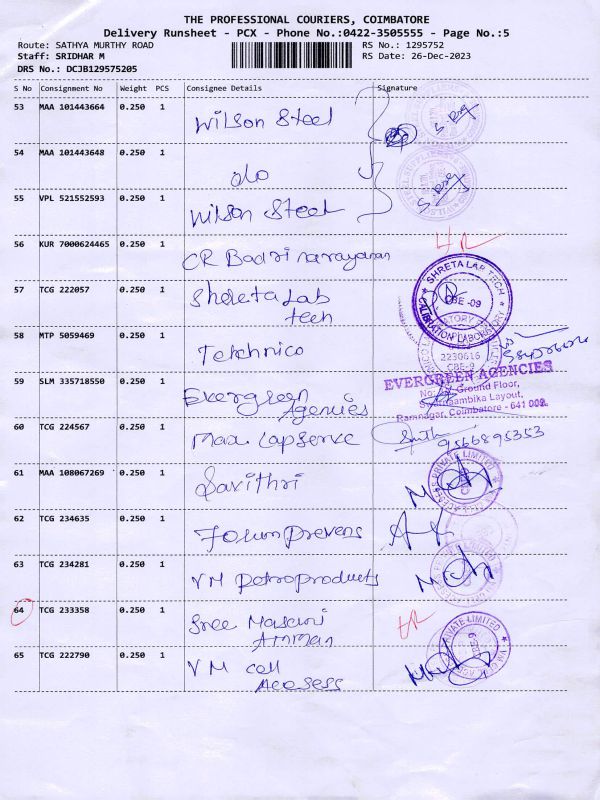 THE PROFESSIONAL COURIERS, COIMBATORE
Delivery Runsheet - PCX - Phone No.:0422-3505555 - Page No.:5
Route: SATHYA MURTHY ROAD RS No.: 1295752
Staff: SRIDHAR M RS Date: 26-Dec-2023
DRS No.: DCJB129575205
S No Consignment No Weight PCS Consignee Details Signature
53 MAA 101443664 0.250 1 Wilson Steel
54 MAA 101443648 0.250 1 do
55 VPL 521552593 0.250 1 Wilson Steel
56 KUR 7000624465 0.250 1 CR Badri narayanan
57 TCG 222057 0.250 1 Shreta Lab
tech
SHRETA LAB TECH
CBE -09
CALIBRATION LABORATORY
58 MTP 5059469 0.250 1 Tekhnico
2230616
CBE-9
59 SLM 335718550 0.250 1 Evergreen
Agencies
EVERGREEN AGENCIES
Ground Floor,
Layout,
Ramnagar, Coimbatore - 641 009.
60 TCG 224567 0.250 1 Max Lapserve
9566895353
61 MAA 108067269 0.250 1 Savithri
PRIVATE LIMITED
62 TCG 234635 0.250 1
63 TCG 234281 0.250 1 VM petroproducts
64 TCG 233358 0.250 1 Sree Masani
Amman
65 TCG 222790 0.250 1 VM cell
Acesess